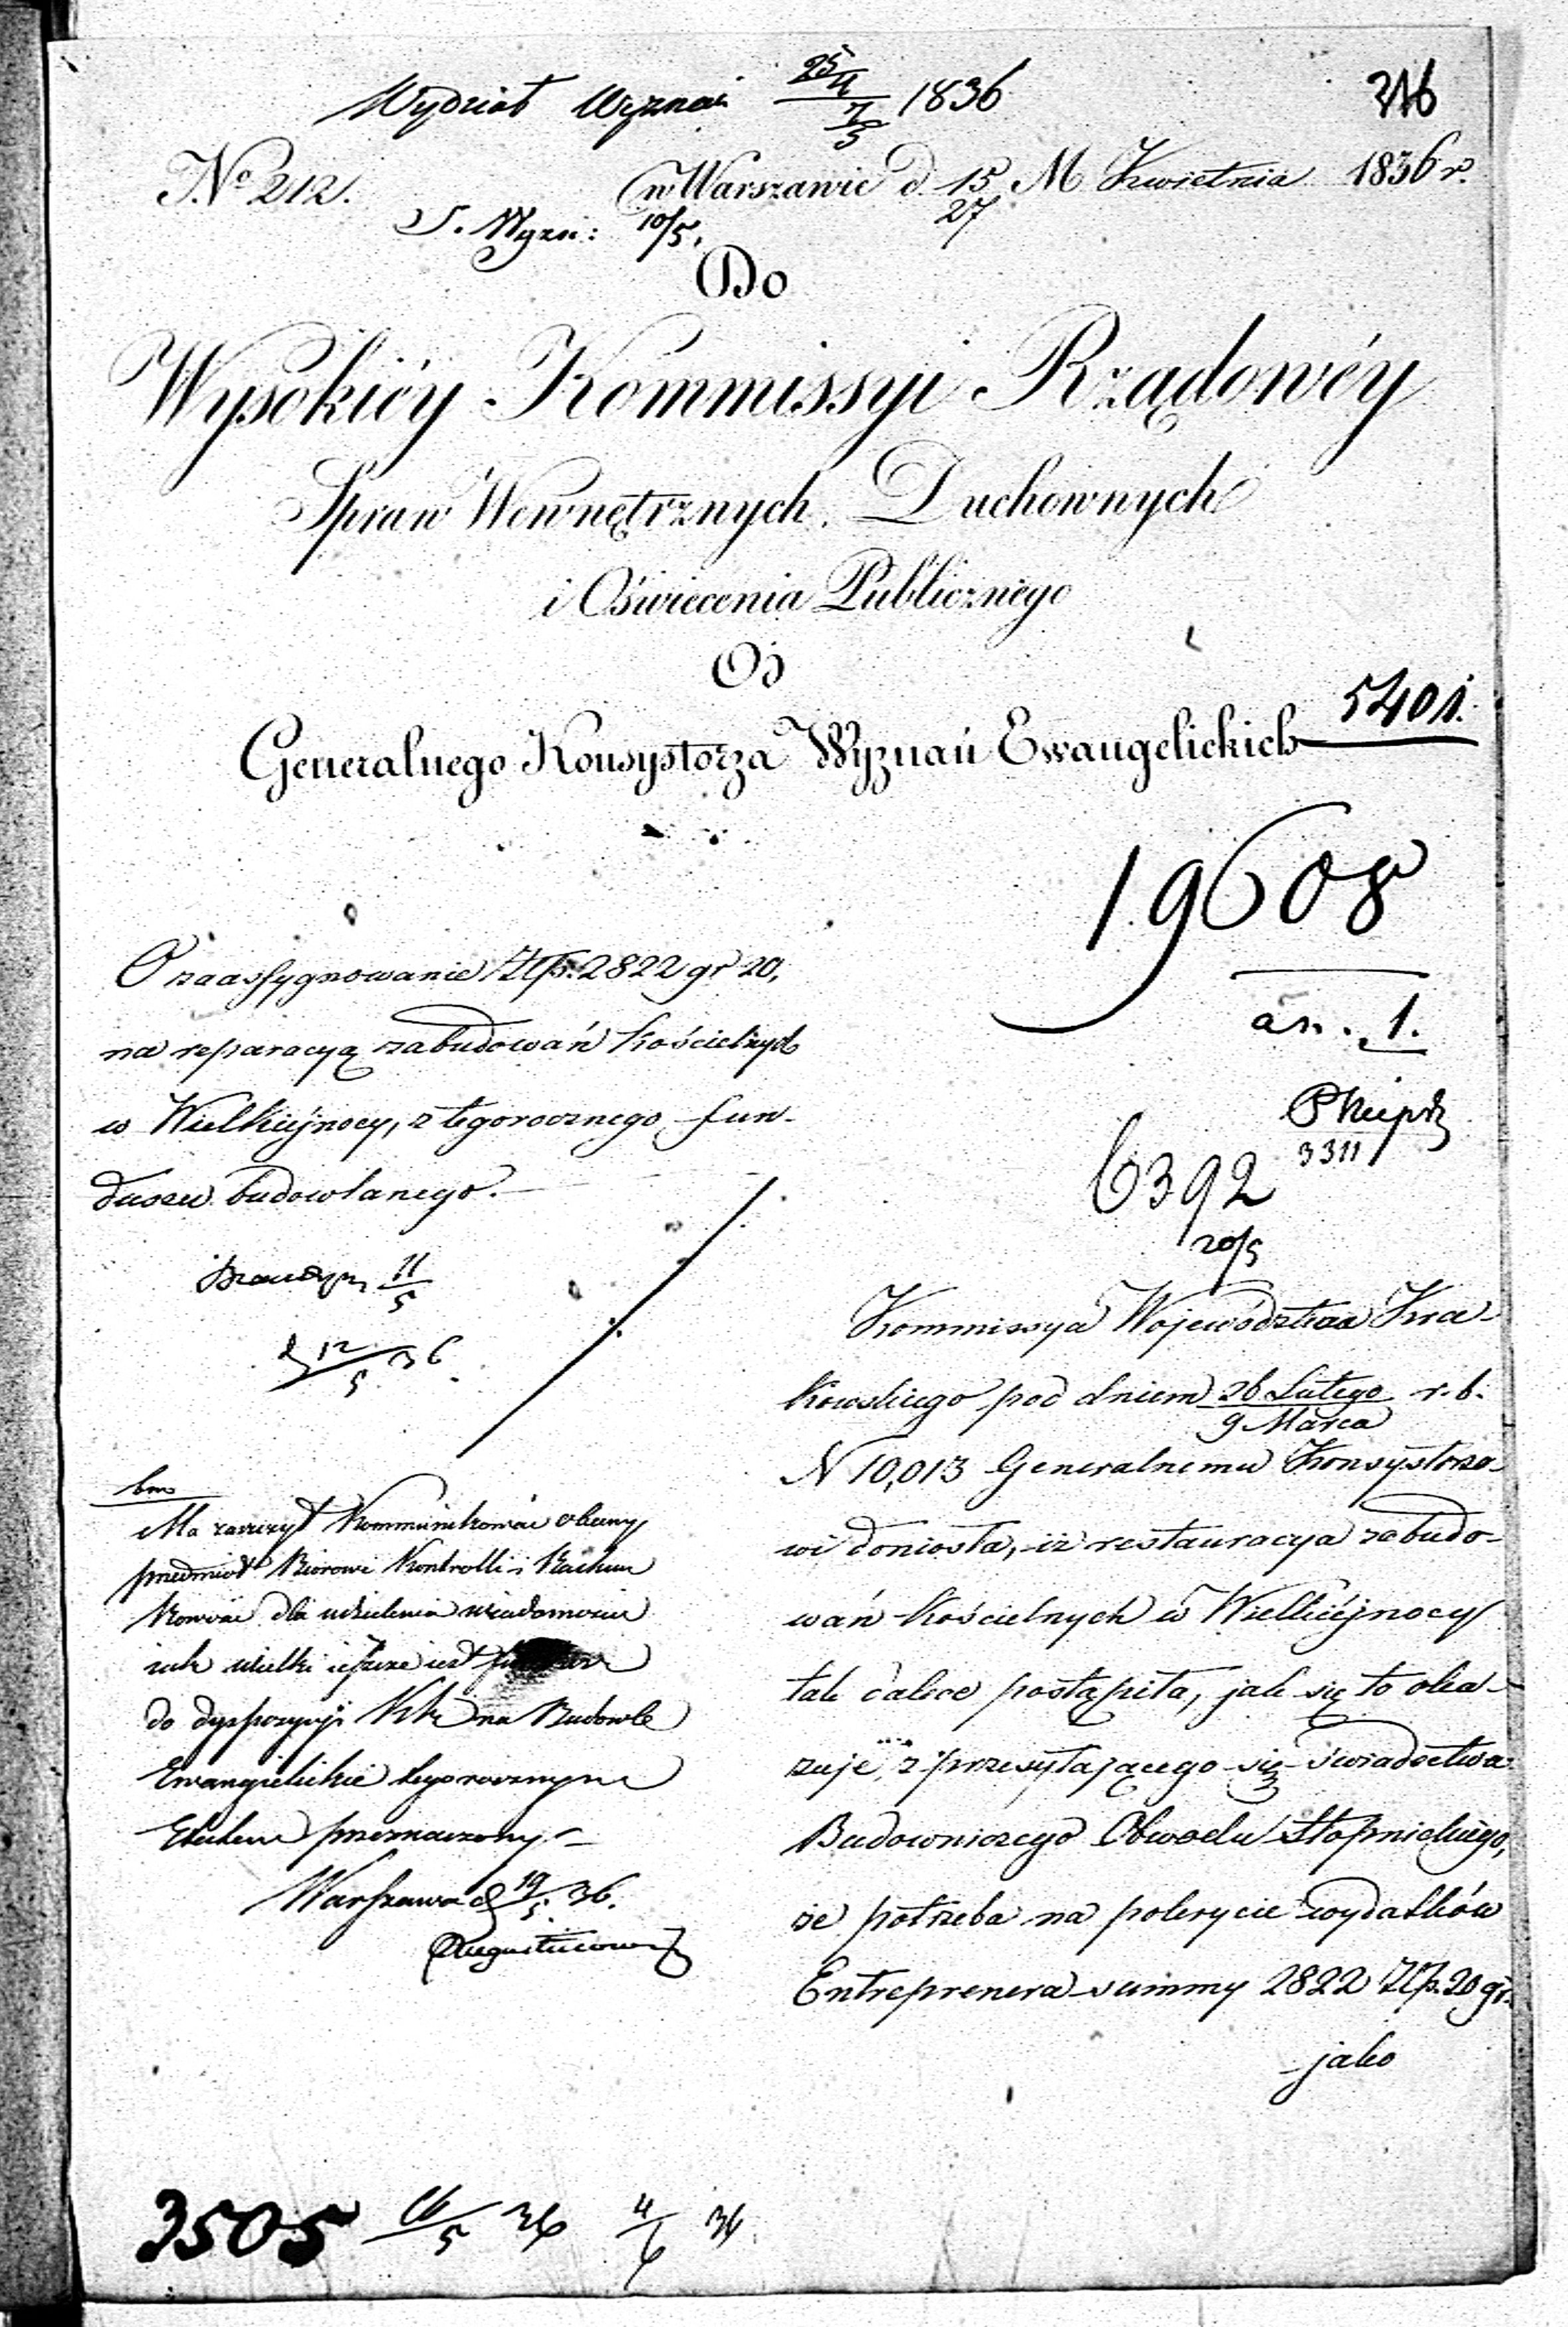 Wydział Wyznań 25/4 7/5 1836
316
No 212.
w Warszawie d. 15/27 M Kwietnia 1836 r.
S. Wyzn: 10/5.
Do
Wysokiéy Kommissyi Rządowéy
Spraw Wewnętrznych, Duchownych
i Oświecenia Publicznego
Od
Generalnego Konsystorza Wyznań Ewangelickich
5401.
19608
an. 1.
3311
6392
20/5
O zaassygnowanie Złp. 2822 gr 20,
na reparacyą zabudowań Kościelnych
w Wielkiéjnocy, z tegorocznego fun-
duszu budowlanego.
11/5
d 12/5 36
Ma zaszczyt Kommunikować obecny
przedmiot Biórowi Kontrolli i Rachun
kowości dla udzielenia wiadomości
iak wielki ieszcze iest fundusz
do dyspozycyi KR na Budowle
Ewangielickie tegorocznym
Etatem przeznaczony.
Warszawa d 19/5 36.
Kommissya Województwa Kra-
kowskiego pod dniem 26 Lutego/9 Marca r. b.
N 10,013 Generalnemu Konsystorzo-
wi doniosła, iż restauracya zabudo-
wań Kościelnych w Wielkiéjnocy
tak dalece postąpiła, jak się to oka-
zuje z przesyłającego się świadectwa
Budowniczego Obwodu Stopnickiego,
że potrzeba na pokrycie wydatków
Entreprenera summy 2822 Złp. 20 gr.
jako
3505 16/5 36 4/6 36